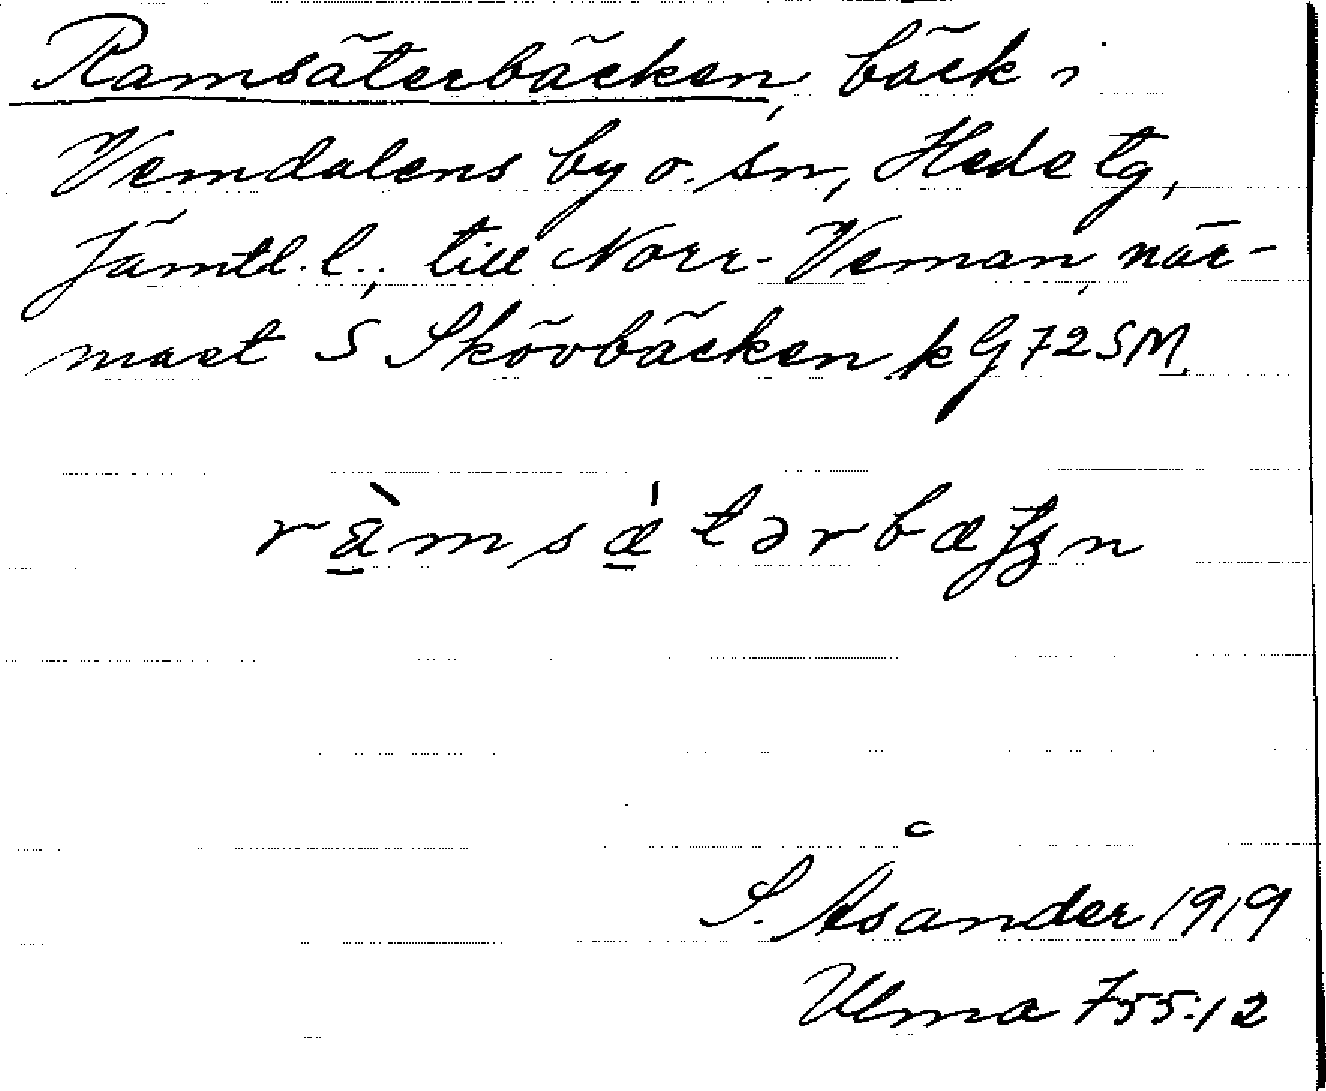 Ramsäterbäcken, bäck i
Vemdalens by o. sn, Hede tg,
Jämtl. l., till Norr-Veman, när-
mast S Skövbäcken k G72SM.
S. Åsander 1919
Ulma 755:12